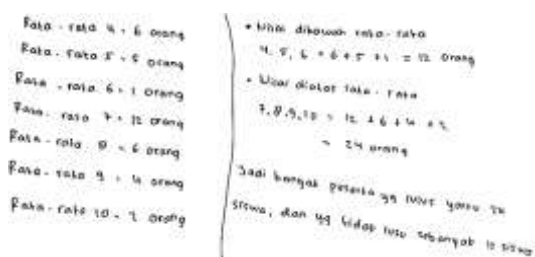 Rata - rata 4 = 6 orang
Rata - rata 5 = 5 orang
Rata - rata 6 = 1 orang
Rata - rata 7 = 12 orang
Rata - rata 8 = 6 orang
Rata - rata 9 = 4 orang
Rata - rata 10 = 2 orang
• Nilai dibawah rata - rata
4, 5, 6 = 6 + 5 + 1 = 12 orang
• Nilai diatas rata - rata
7, 8, 9, 10 = 12 + 6 + 4 + 2
= 24 orang
Jadi banyak peserta yg lulus yaitu 24
siswa, dan yg tidak sebanyak 12 siswa